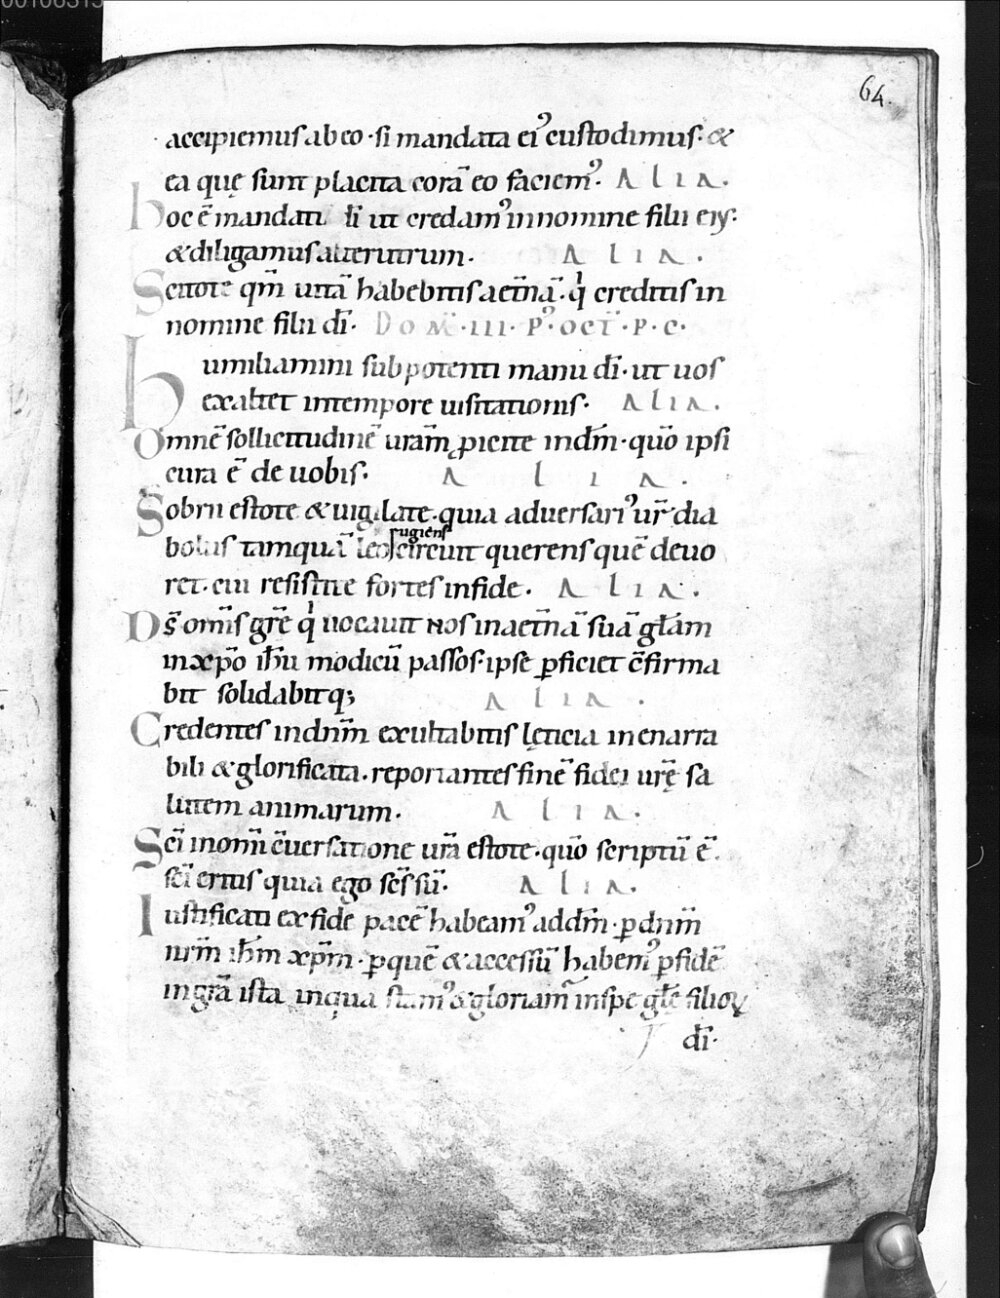 64.
accipiemus ab eo · si mandata ei᾽ custodimus · &
ea quę sunt placita corā eo faciem᾽. ALIA.
hoc ē mandatū di ut credam᾽ in nomine filii ei᾽:
& diligamus alterutrum. ALIA.
Scitote qm̄ uitā habebitis aet̄nā. q̇ creditis in
nomine filii dī. DOM̄ · III · P᾽ · OCT̄ · P · C ·
humiliamini sub potenti manu dī · ut uos
exaltet in tempore uisitationis. ALIA.
Omnē sollicitudinē urām ꝓicite in dm̄ · quō ipsi
cura ē de uobis. ALIA.
Sobrii estote & uigilate · quia aduersari᾽ ur̄ dia
bolus tamquā leo rugiens circuit querens quē deuo
ret · cui resistite fortes in fide. ALIA.
Ds̄ omīs gr̄ę q̇ uocauit nos in aet̄nā suā głam
in xp̄o ih̄u modicū passos · ipse ꝑficiet c̄firma
bit solidabitq;
ALIA.
Credentes in dn̄m exultabitis lęticia inenarra
bili & glorificata · reportantes finē fidei ur̄ę sa
lutem animarum. ALIA.
Sc̄i in om̄i c̄uersatione urā estote · quō scriptū ē.
sc̄i eritis quia ego sc̄s sū. ALIA.
Iustificati ex fide pacē habeam᾽ ad dm̄ · ꝑ dn̄m
nr̄m ih̄m xp̄m · ꝑ quē & accessū habem᾽ ꝑ fidē
in grā ista in qua stam᾽ & gloriam᾽ in spe głę filioꝝ
dī.